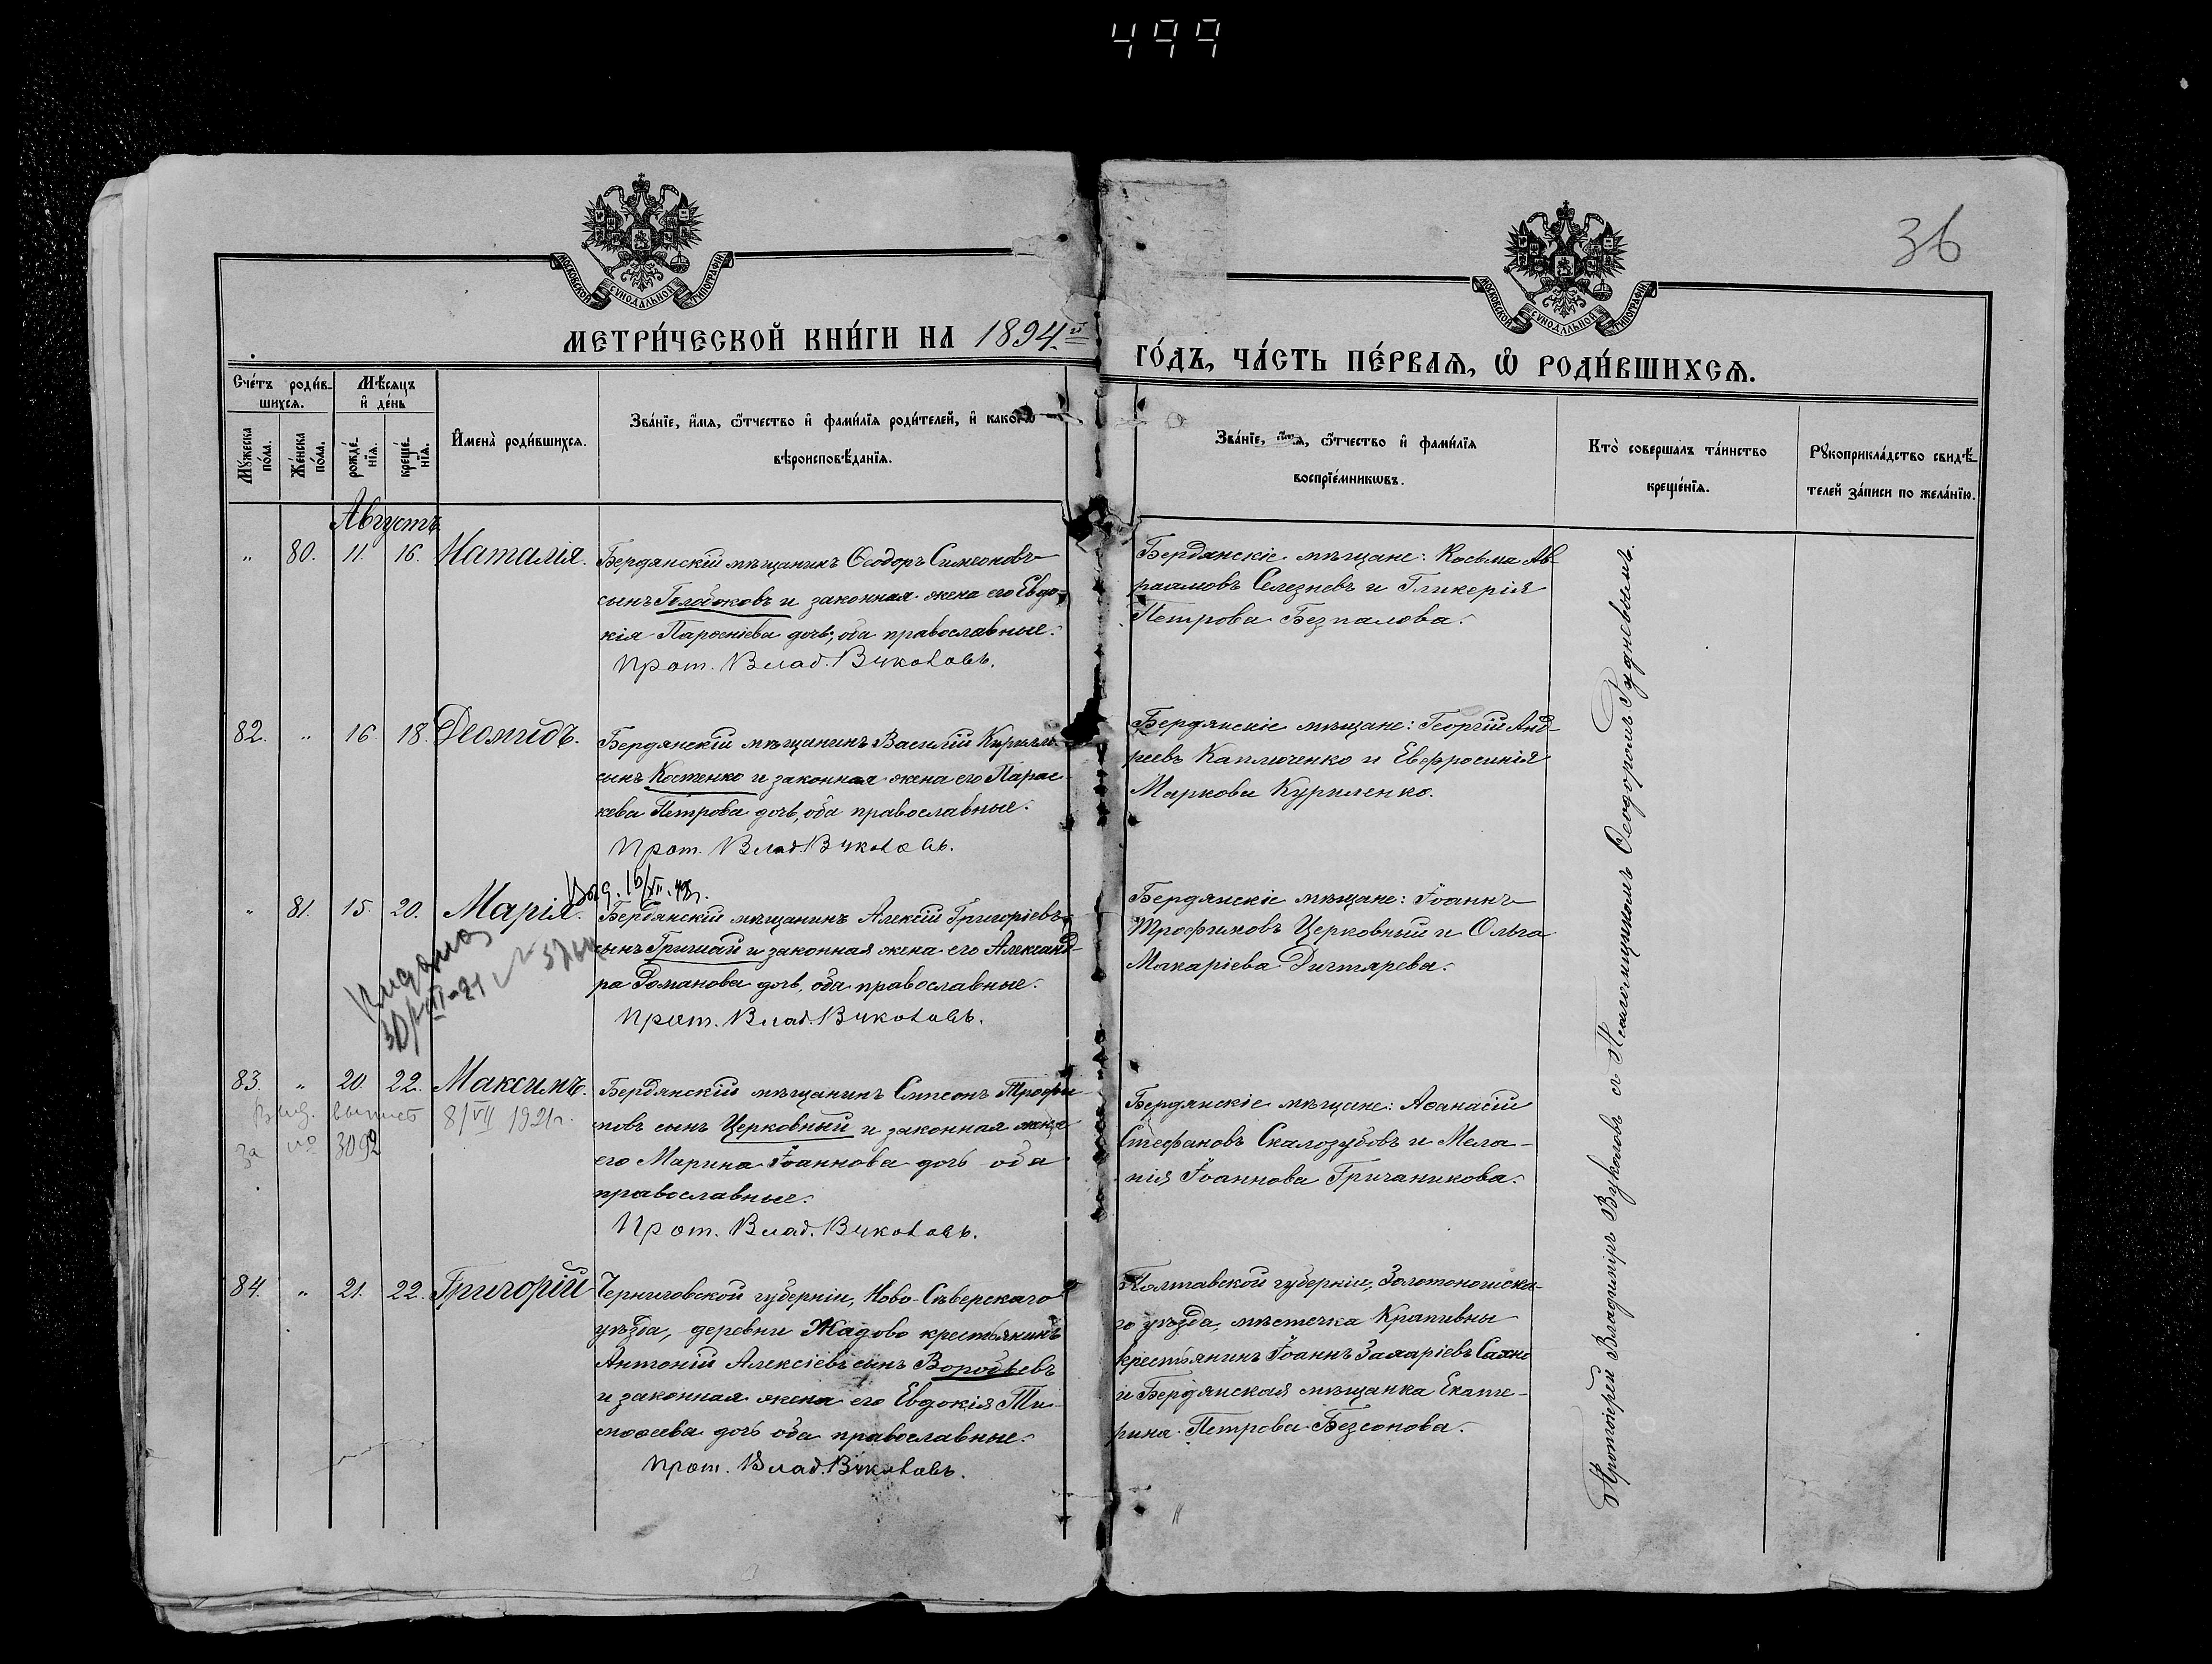 499
36
МОСКОВСКОЙ СѴНОДАЛЬНОЙ ТИПОГРАФІИ
МОСКОВСКОЙ СѴНОДАЛЬНОЙ ТИПОГРАФІИ
МЕТРИ́ЧЕСКОЙ КНИ́ГИ НА 1894й
ГО́ДЪ, ЧА́СТЬ ПЕ́РВАѦ, Ѿ РОДИ́ВШИХСѦ.
Сче́тъ роди́в-
шихсѧ.
Мѣ́сѧцъ
и҆ де́нь
Мꙋ́жеска по́ла.
Же́нска по́ла.
рожде́нїѧ.
креще́нїѧ.
И҆мена̀ роди́вшихсѧ.
Зва́нїе, и҆́мѧ, ѻ҆́тчество и҆ фами́лїѧ роди́телей, и҆ како́гѡ
вѣроисповѣ́данїѧ.
Зва́нїе, и҆́мѧ, ѻ҆́тчество и҆ фами́лїѧ
воспрїе́мникѡвъ.
Кто̀ соверша́лъ та́инство
креще́нїѧ.
Рꙋкоприкла́дство свидѣ́-
телей за́писи по жела́нїю.
Августъ
" 80. 11. 16. Наталія.
Бердянскій мѣщанинъ Ѳеодоръ Симеоновъ
сынъ Голобоковъ и законная жена его Евдо-
кія Парѳеніева дочь; оба православные.
Прот. Влад. Вуколовъ.
Бердянскіе мѣщане: Косьма Ав-
раамовъ Селезневъ и Гликерія
Петрова Безпалова.
82. " 16. 18. Деомидъ.
Бердянскій мѣщанинъ Василій Кирилл
сынъ Костенко и законная жена его Парас-
кева Петрова дочь, оба православные.
Прот. Влад. Вуколовъ.
Бердянскіе мѣщане: Георгій Анд-
реевъ Каплюченко и Евфросинія
Маркова Куриленко.
16/VII
" 81. 15. 20. Марія.
Бердянскій мѣщанинъ Алексій Григоріевъ
сынъ Гришай и законная жена его Александ-
ра Романова дочь, оба православные.
Прот. Влад. Вуколовъ.
Бердянскіе мѣщане: Іоаннъ
Трофимовъ Церковный и Ольга
Макаріева Дигтярева.
Видана
83. " 20. 22. Максимъ.
Выд. выпись 8/VII 1921г.
за № 3092
Бердянскій мѣщанинъ Симеонъ Трофи
мовъ сынъ Церковный и законная жена
его Марина Іоаннова дочь оба
православные.
Прот. Влад. Вуколовъ.
Бердянскіе мѣщане: Аѳанасій
Стефановъ Скалозубовъ и Мела-
нія Іоаннова Гричаникова.
84. " 21. 22. Григорій
Черниговской губерніи, Ново-Сѣверскаго
уѣзда, деревни Жадово крестьянинъ
Антоній Алексіевъ сынъ Воробьевъ
и законная жена его Евдокія Ти-
моѳеева дочь оба православные.
Прот. Влад. Вуколовъ.
Полтавской губерніи, Золотоношска-
го уѣзда, мѣстечка Крапивны
крестьянинъ Іоаннъ Захаріевъ Сахно
и Бердянская мѣщанка Екате-
рина Петрова Безсонова.
Протоіерей Владиміръ Вуколовъ съ Псаломщикомъ Ѳеодоромъ Рудневымъ.